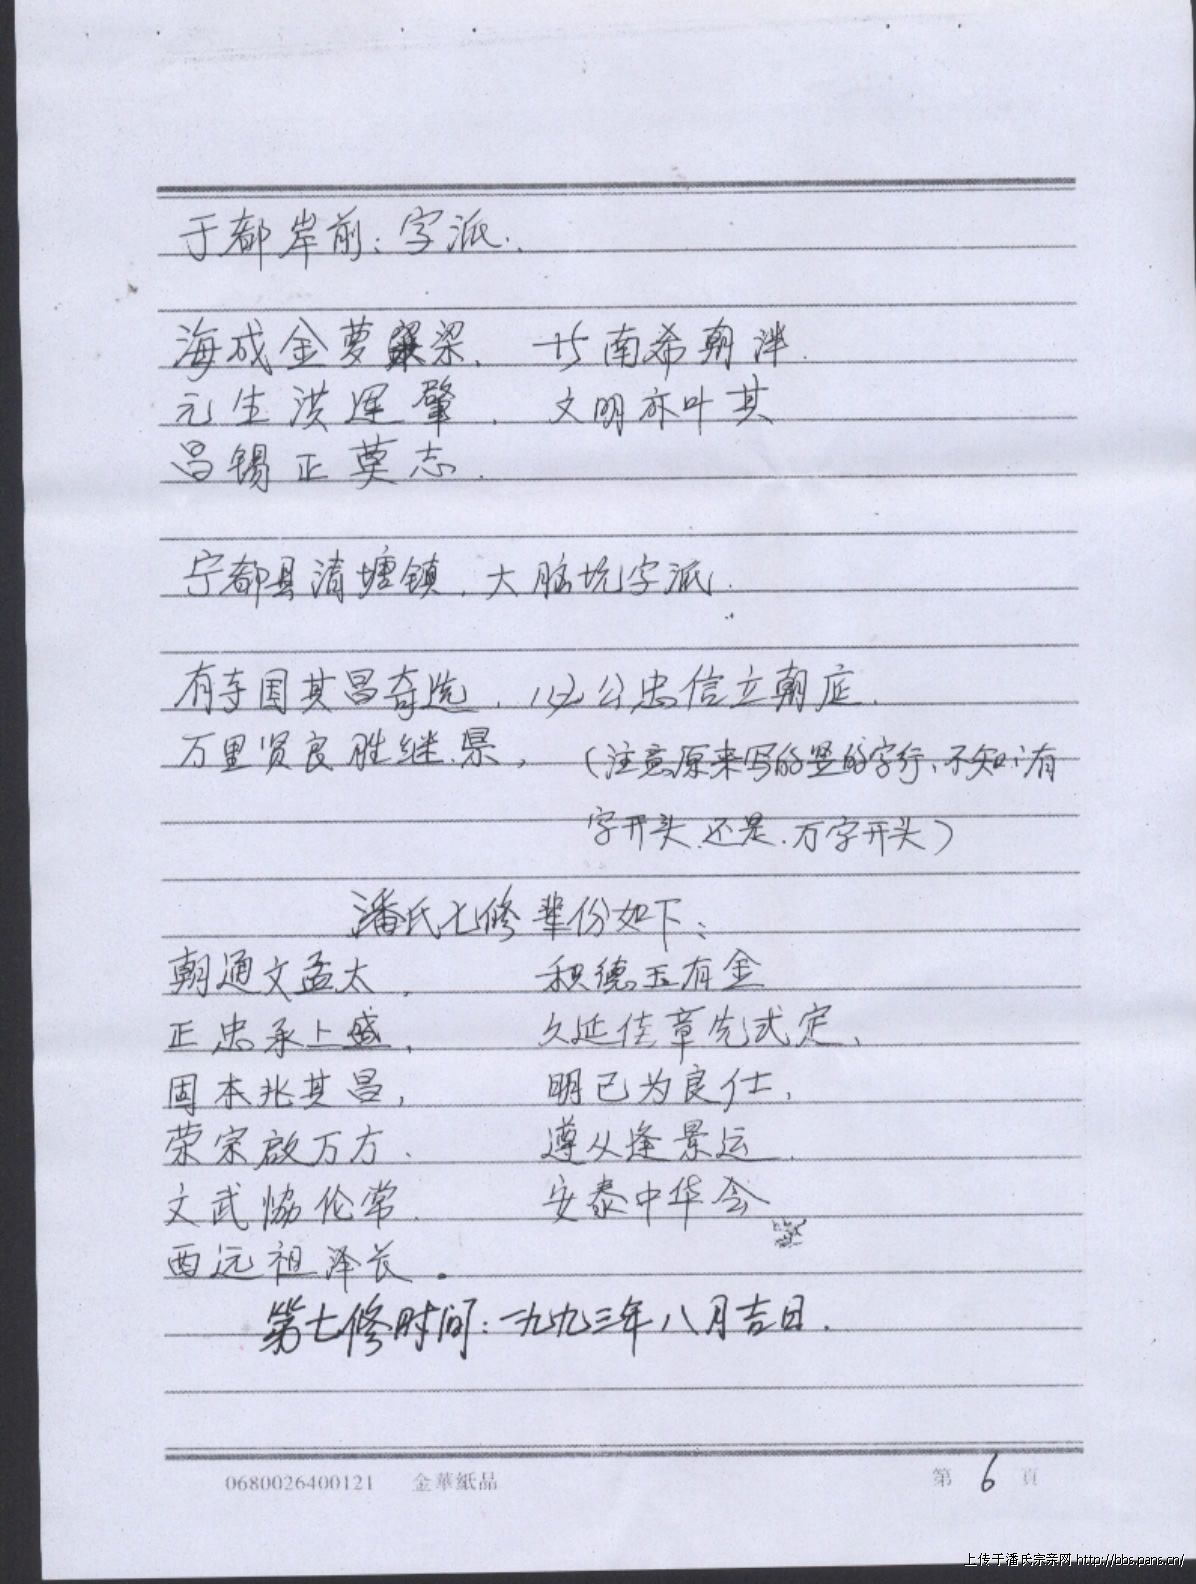 于都岸前：字派．
海成金萝梁． 南希朝泮．
元生洪运肇． 文明亦叶其
昌锡正莫志．
宁都县清塘镇．大脑坑字派．
有寺国其昌奇选．公忠信立朝庭．
万里贤良胜继景，（注意原来写的竖的字行、不知有
字开头．还是．万字开头）
潘氏七修辈份如下：
朝通文孟太， 积德玉有金
正忠承上盛， 久延佳章先式定．
固本兆其昌， 明已为良仕，
荣宗啟万方． 遵从逢景运．
文武恊伦常． 安泰中华会
西远祖泽长．
第七修时间：一九九三年八月吉日．
0680026400121 金華紙品 第6頁
上传于潘氏宗亲网 http://bbs.pans.cn/